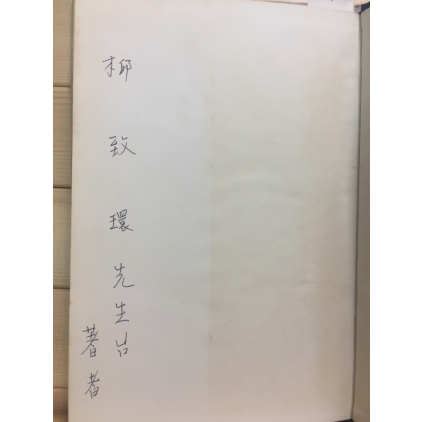 柳致環先生岩
著者